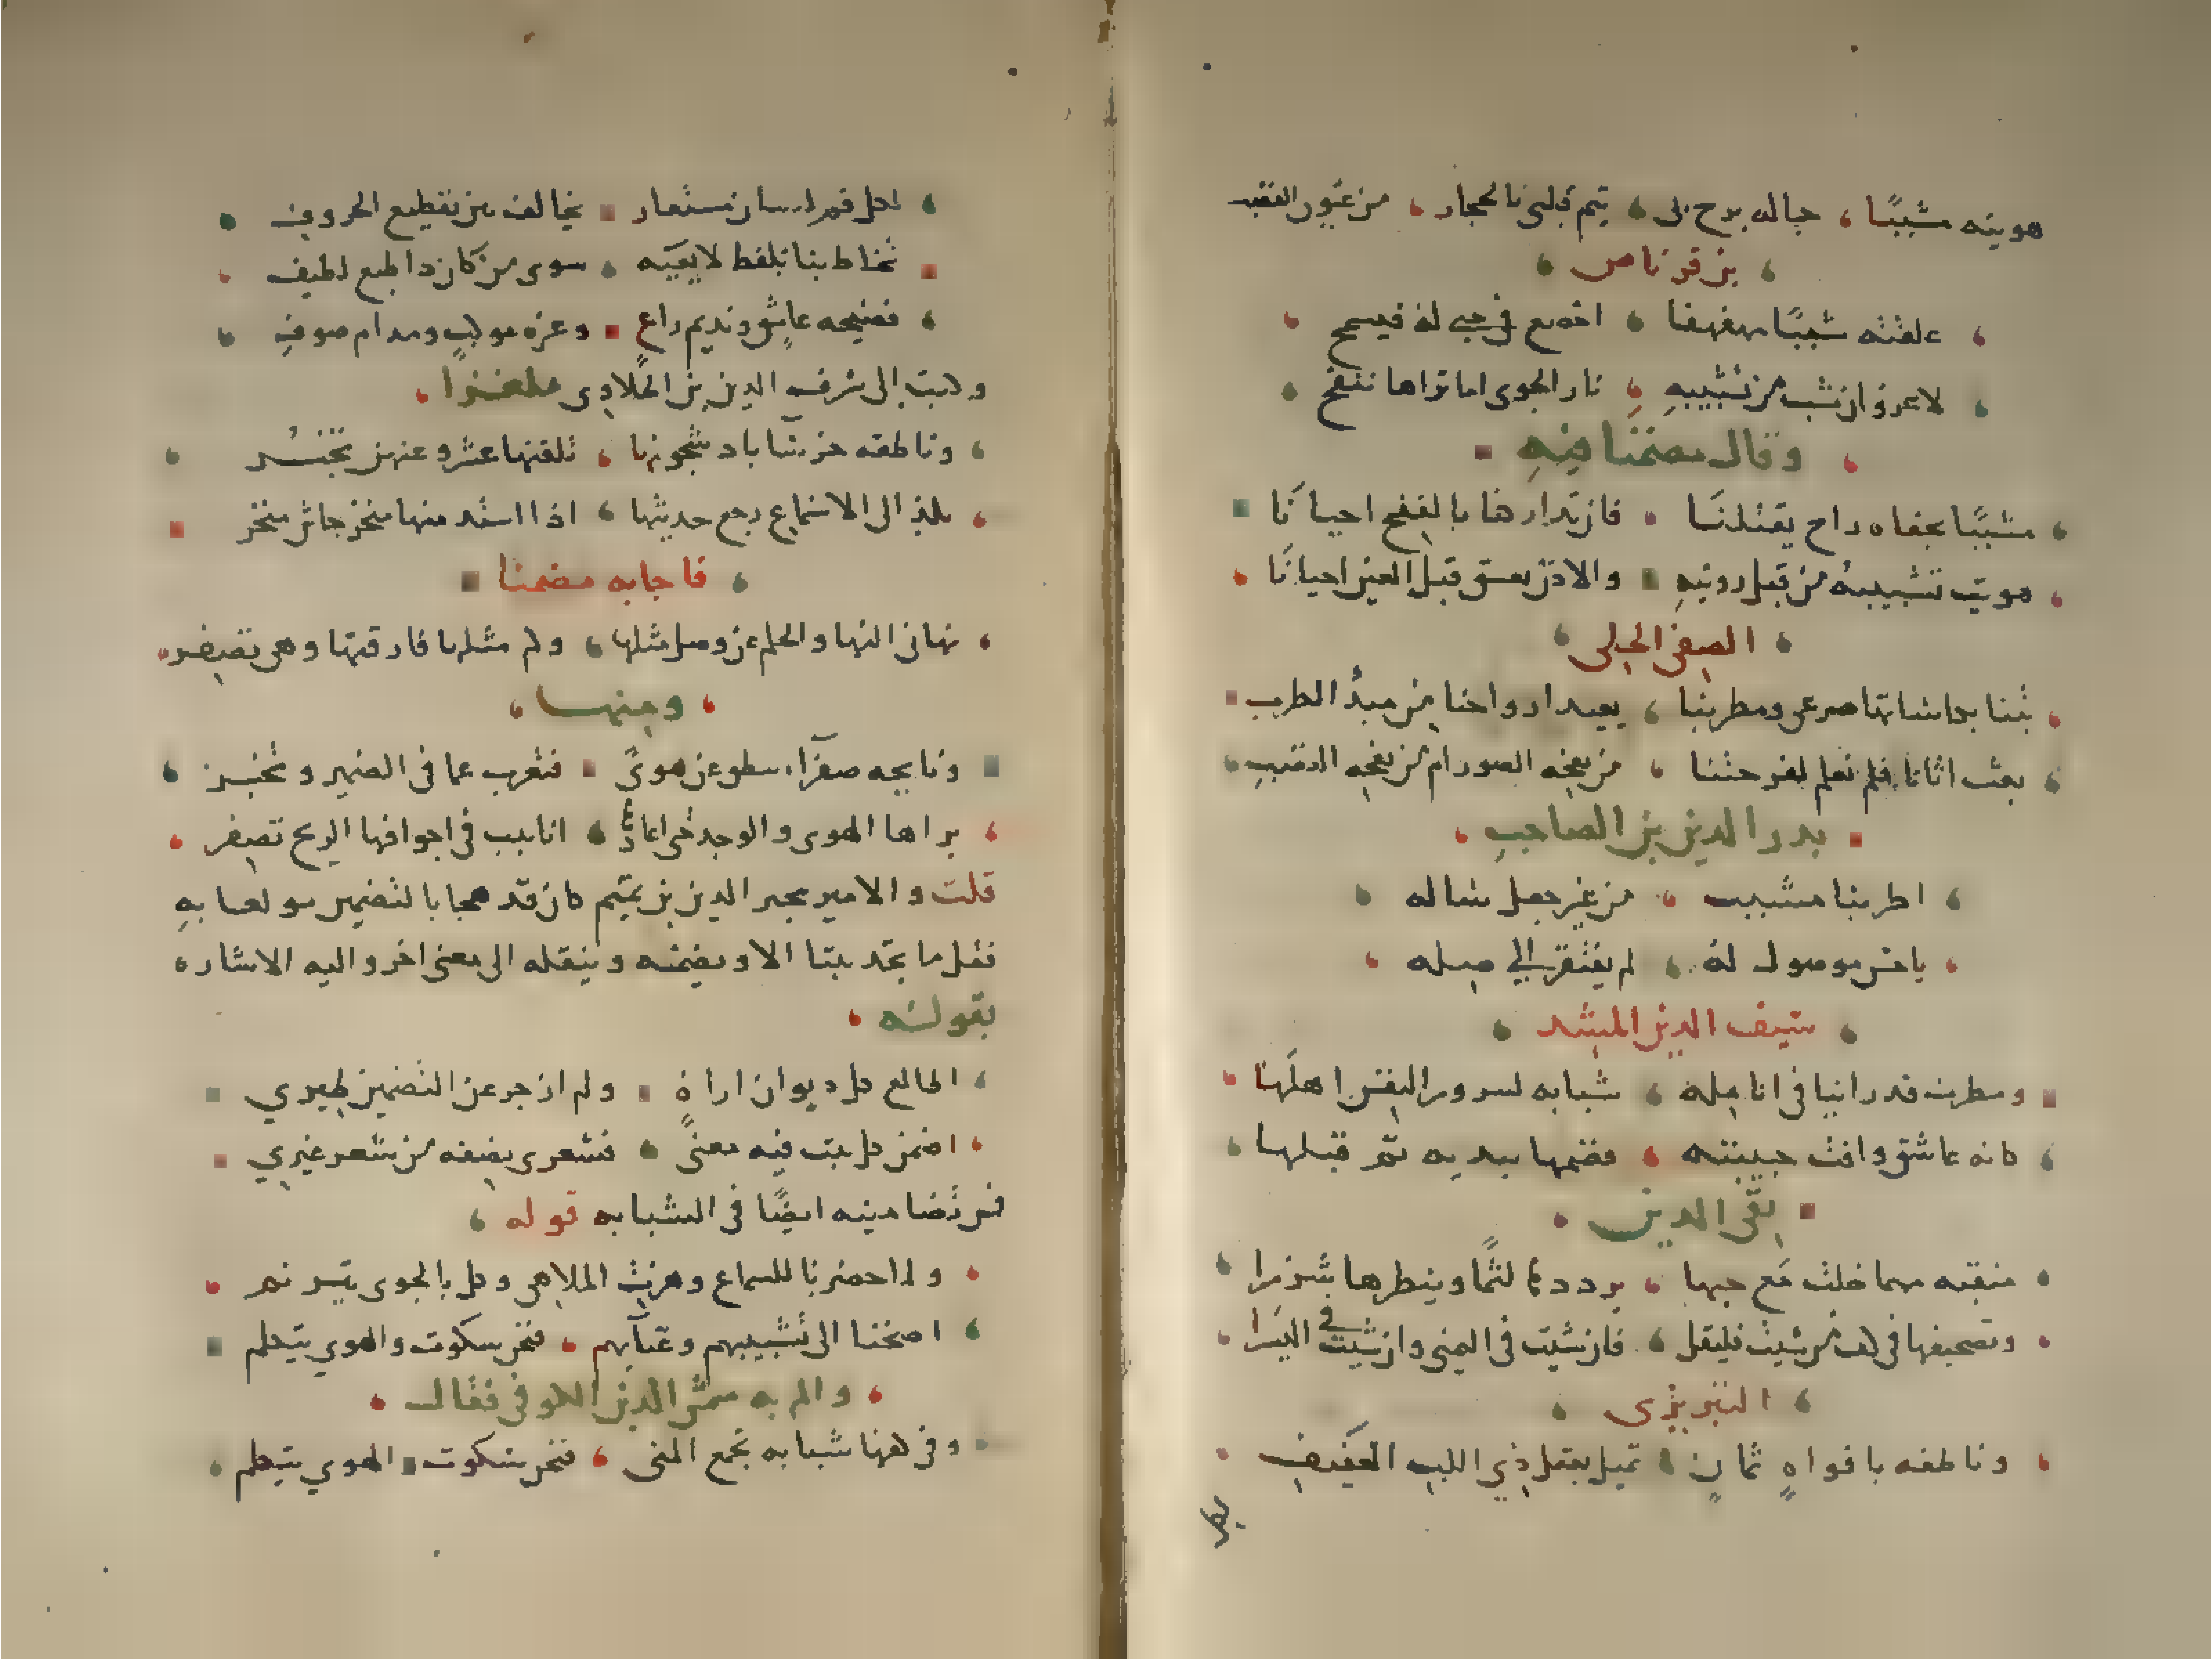 هويته مشببًا جماله برح بي يتم قلبي بالحجاز من عيون القصب
بن قرناص
علقته شببًا مهفهفا في حبي له فيسمح
لا غرو ان شب من تشبيبه نار الجوى اما تراها تنفخ
وقال مضمنا فيه
مشببًا بجفاه راح يقتلنا فان تدارهنا بالنفخ احيانًا
هويت تشبيبه من قبل رويته والاذن تعشق قبل العين احيانًا
الصفي الحلي
صرعى ومطربنا يعيد ارواحنا من مبدأ الطرب
بعث اتانا فلم نعلم لفرحتنا من نفخه الصور ام من نفخه القصب
بدر الدين بن الصاحب
اطربنا مشبب من غير جعل ساله
يا حسن موصول له لم يفتقر الى صله
سيف الدين المشد
ومطرب قد راينا في انامله شبابه لسرور النفس اهلها
كانه عاشق وافت حبيبته فضمها بيديه ثم قبلها
تقي الدين
منقبه مهما خلت مع حبها يرددها لثمًا وينظرها شزرا
وتصحيفها في كف من شيت فليقل فان شيت في اليمنى وان شيت في اليسرا
التبريزي
وناطقه بافواهٍ ثمانٍ تميل بعقل ذي اللب العفيف
لكل
لكل فم لسان مستعار يخالف بين تقطيع الحروف
تخاطبنا بلفظ لا يعيه سوى من كان ذا طبع لطيف
فضيحه عاشق ونديم راع وعزه موكب ومدام صوفي
وكتب الى شرف الدين بن الحلاوي ملغزا
وناطقه خرساء باد شجونها تكنفها عشر وعنهن تخبر
يلذ الى الاسماع رجع حديثها اذا اسند منها منخر جاش منخر
فاجابه مضمنا
نهاني النها والحلم عن وصل مثلها وكم مثلها فارقتها وهي تصفر
ومنها
ونابجه صفراء سطو عن هوىً فتعرب عما في الضمير وتخبر
براها الهوى والوجد حتى اعادها انابيب في اجوافها الريح تصفر
قلت والامير مجير الدين بن تميم كان قد هجا بالتضمين مولعا به
فقل ما يجد بيتا الا ويضمنه وينقله الى معنى اخر واليه الاشاره
بقوله
اطالع كل ديوان اراهُ ولم ازجر عن التضمين طيري
اضمن كل بيت فيه معنىً فشعري نصفه من شعر غيري
فمن تضامينه ايضًا في الشبابه قوله
ولما حضرنا للسماع وهزت الملاهي وكل بالجوى يترنم
اصخنا الى تشبيبهم وغنآيهم فنحن سكوت والهوى يتكلم
والم به شمس الدين الكوفي فقال
وفي كفها شبابه تجمع المنى فنحن سكوت والهوى يتكلم